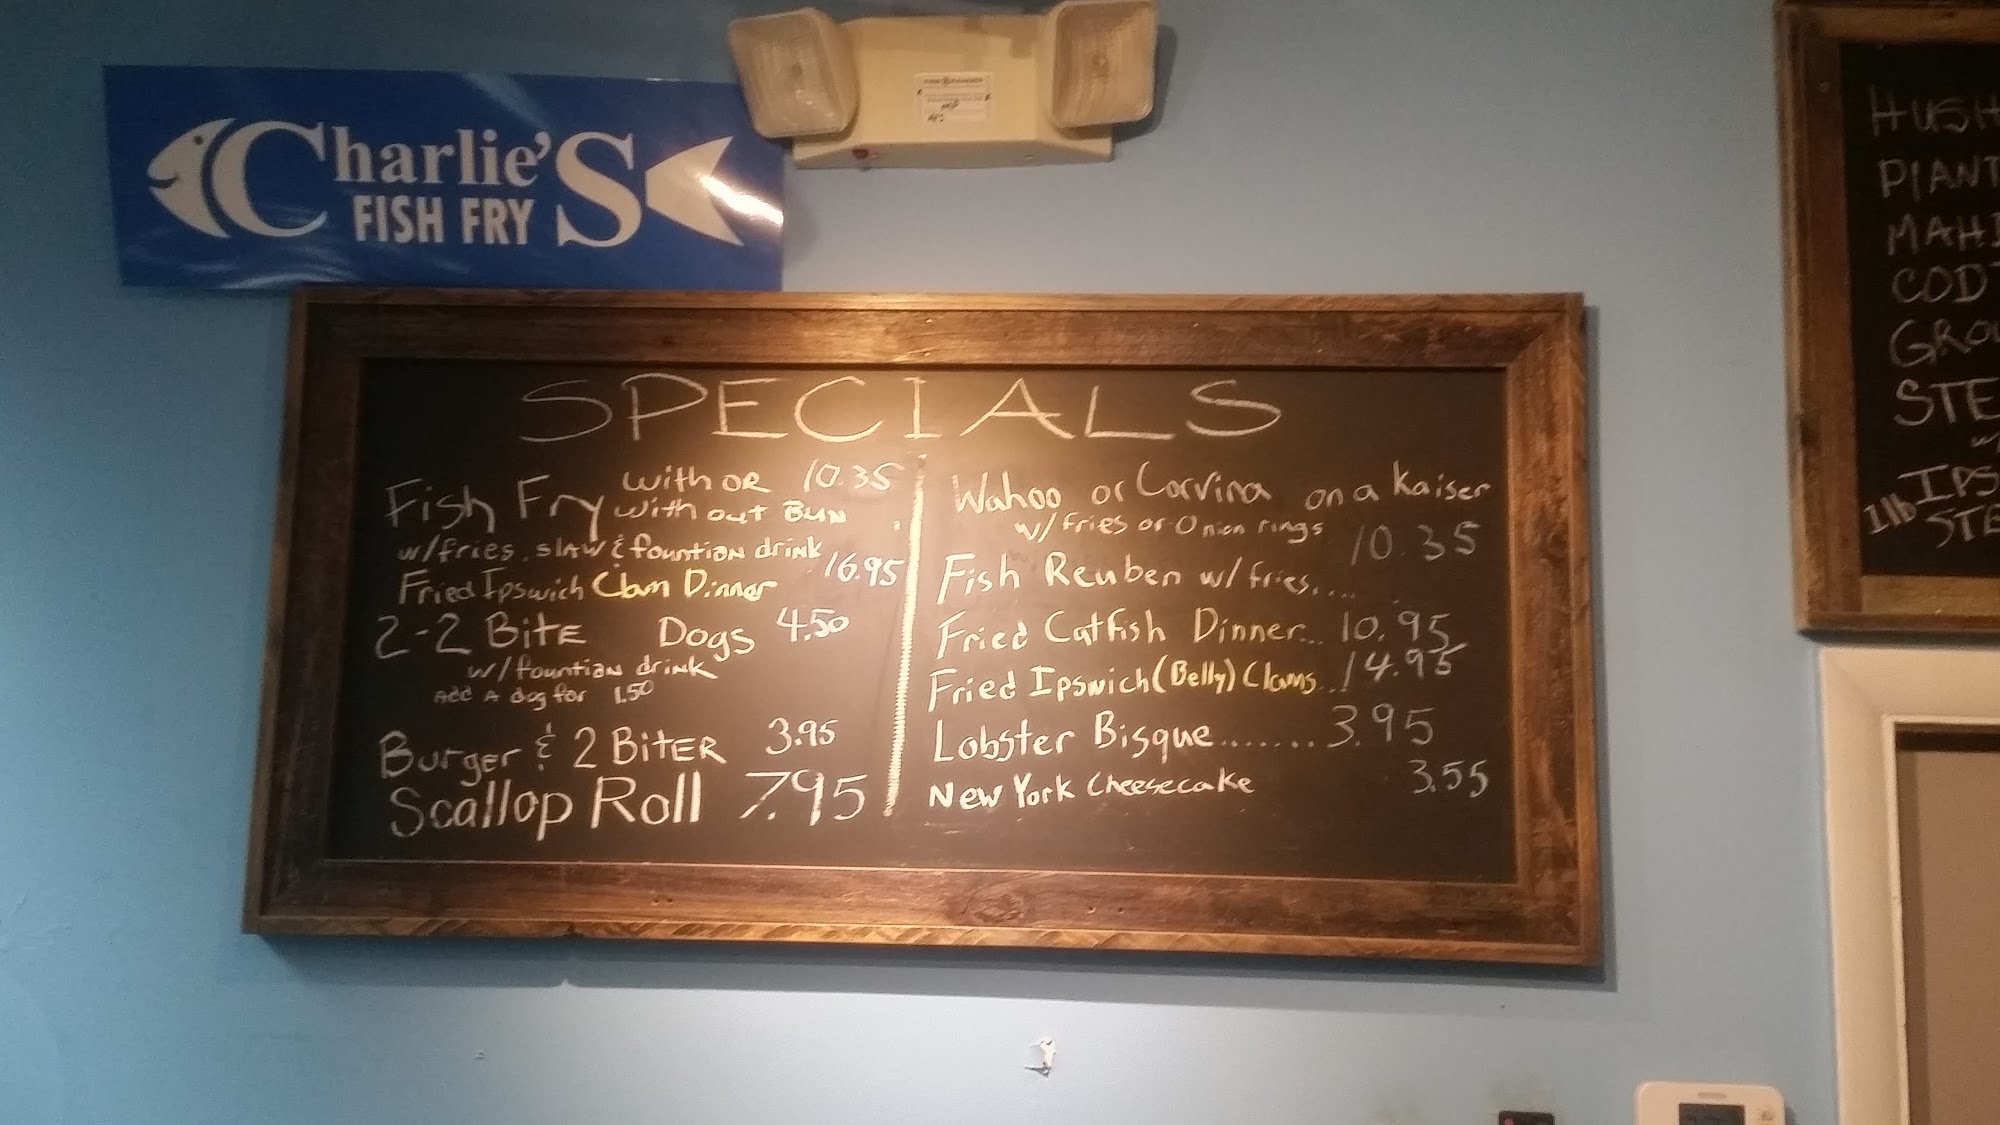 Charlie's
FISH FRY
SPECIALS
Fish Fry with or 10.35
with out BUN
w/fries, slaw & fountian drink
Fried Ipswich Clam Dinner 16.95
2-2 Bite Dogs 4.50
w/fountian drink
Add A dog for 1.50
Burger & 2 Biter 3.95
Scallop Roll 7.95
Wahoo or Corvina on a Kaiser
w/fries or Onion rings 10.35
Fish Reuben w/fries....
Fried Catfish Dinner... 10.95
Fried Ipswich (Belly) Clams... 14.95
Lobster Bisque....... 3.95
New York Cheesecake 3.55
HUSH
PLANT
MAHI
COD
GROU
STE
w/
1lb IPS
STE